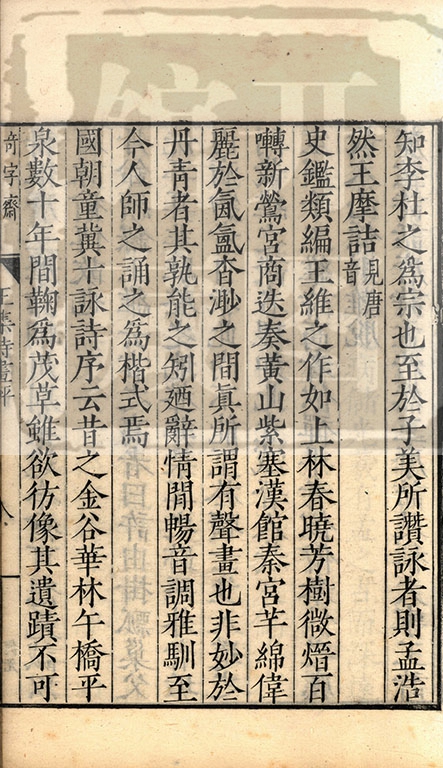 知李杜之爲宗也至於子美所讚詠者則孟浩
然王摩詰見唐音
史鑑類編王維之作如上林春曉芳樹微熠百
囀新鶯宮商迭奏黃山紫塞漢館秦宮芊綿偉
麗於氤氳杳渺之間眞所謂有聲畫也非妙於
丹靑者其孰能之矧廼辭情閒暢音調雅馴至
今人師之誦之爲楷式焉
國朝童冀十詠詩序云昔之金谷華林午橋平
泉數十年間鞠爲茂草雖欲彷像其遺蹟不可
奇字齋
王集詩畫評
八